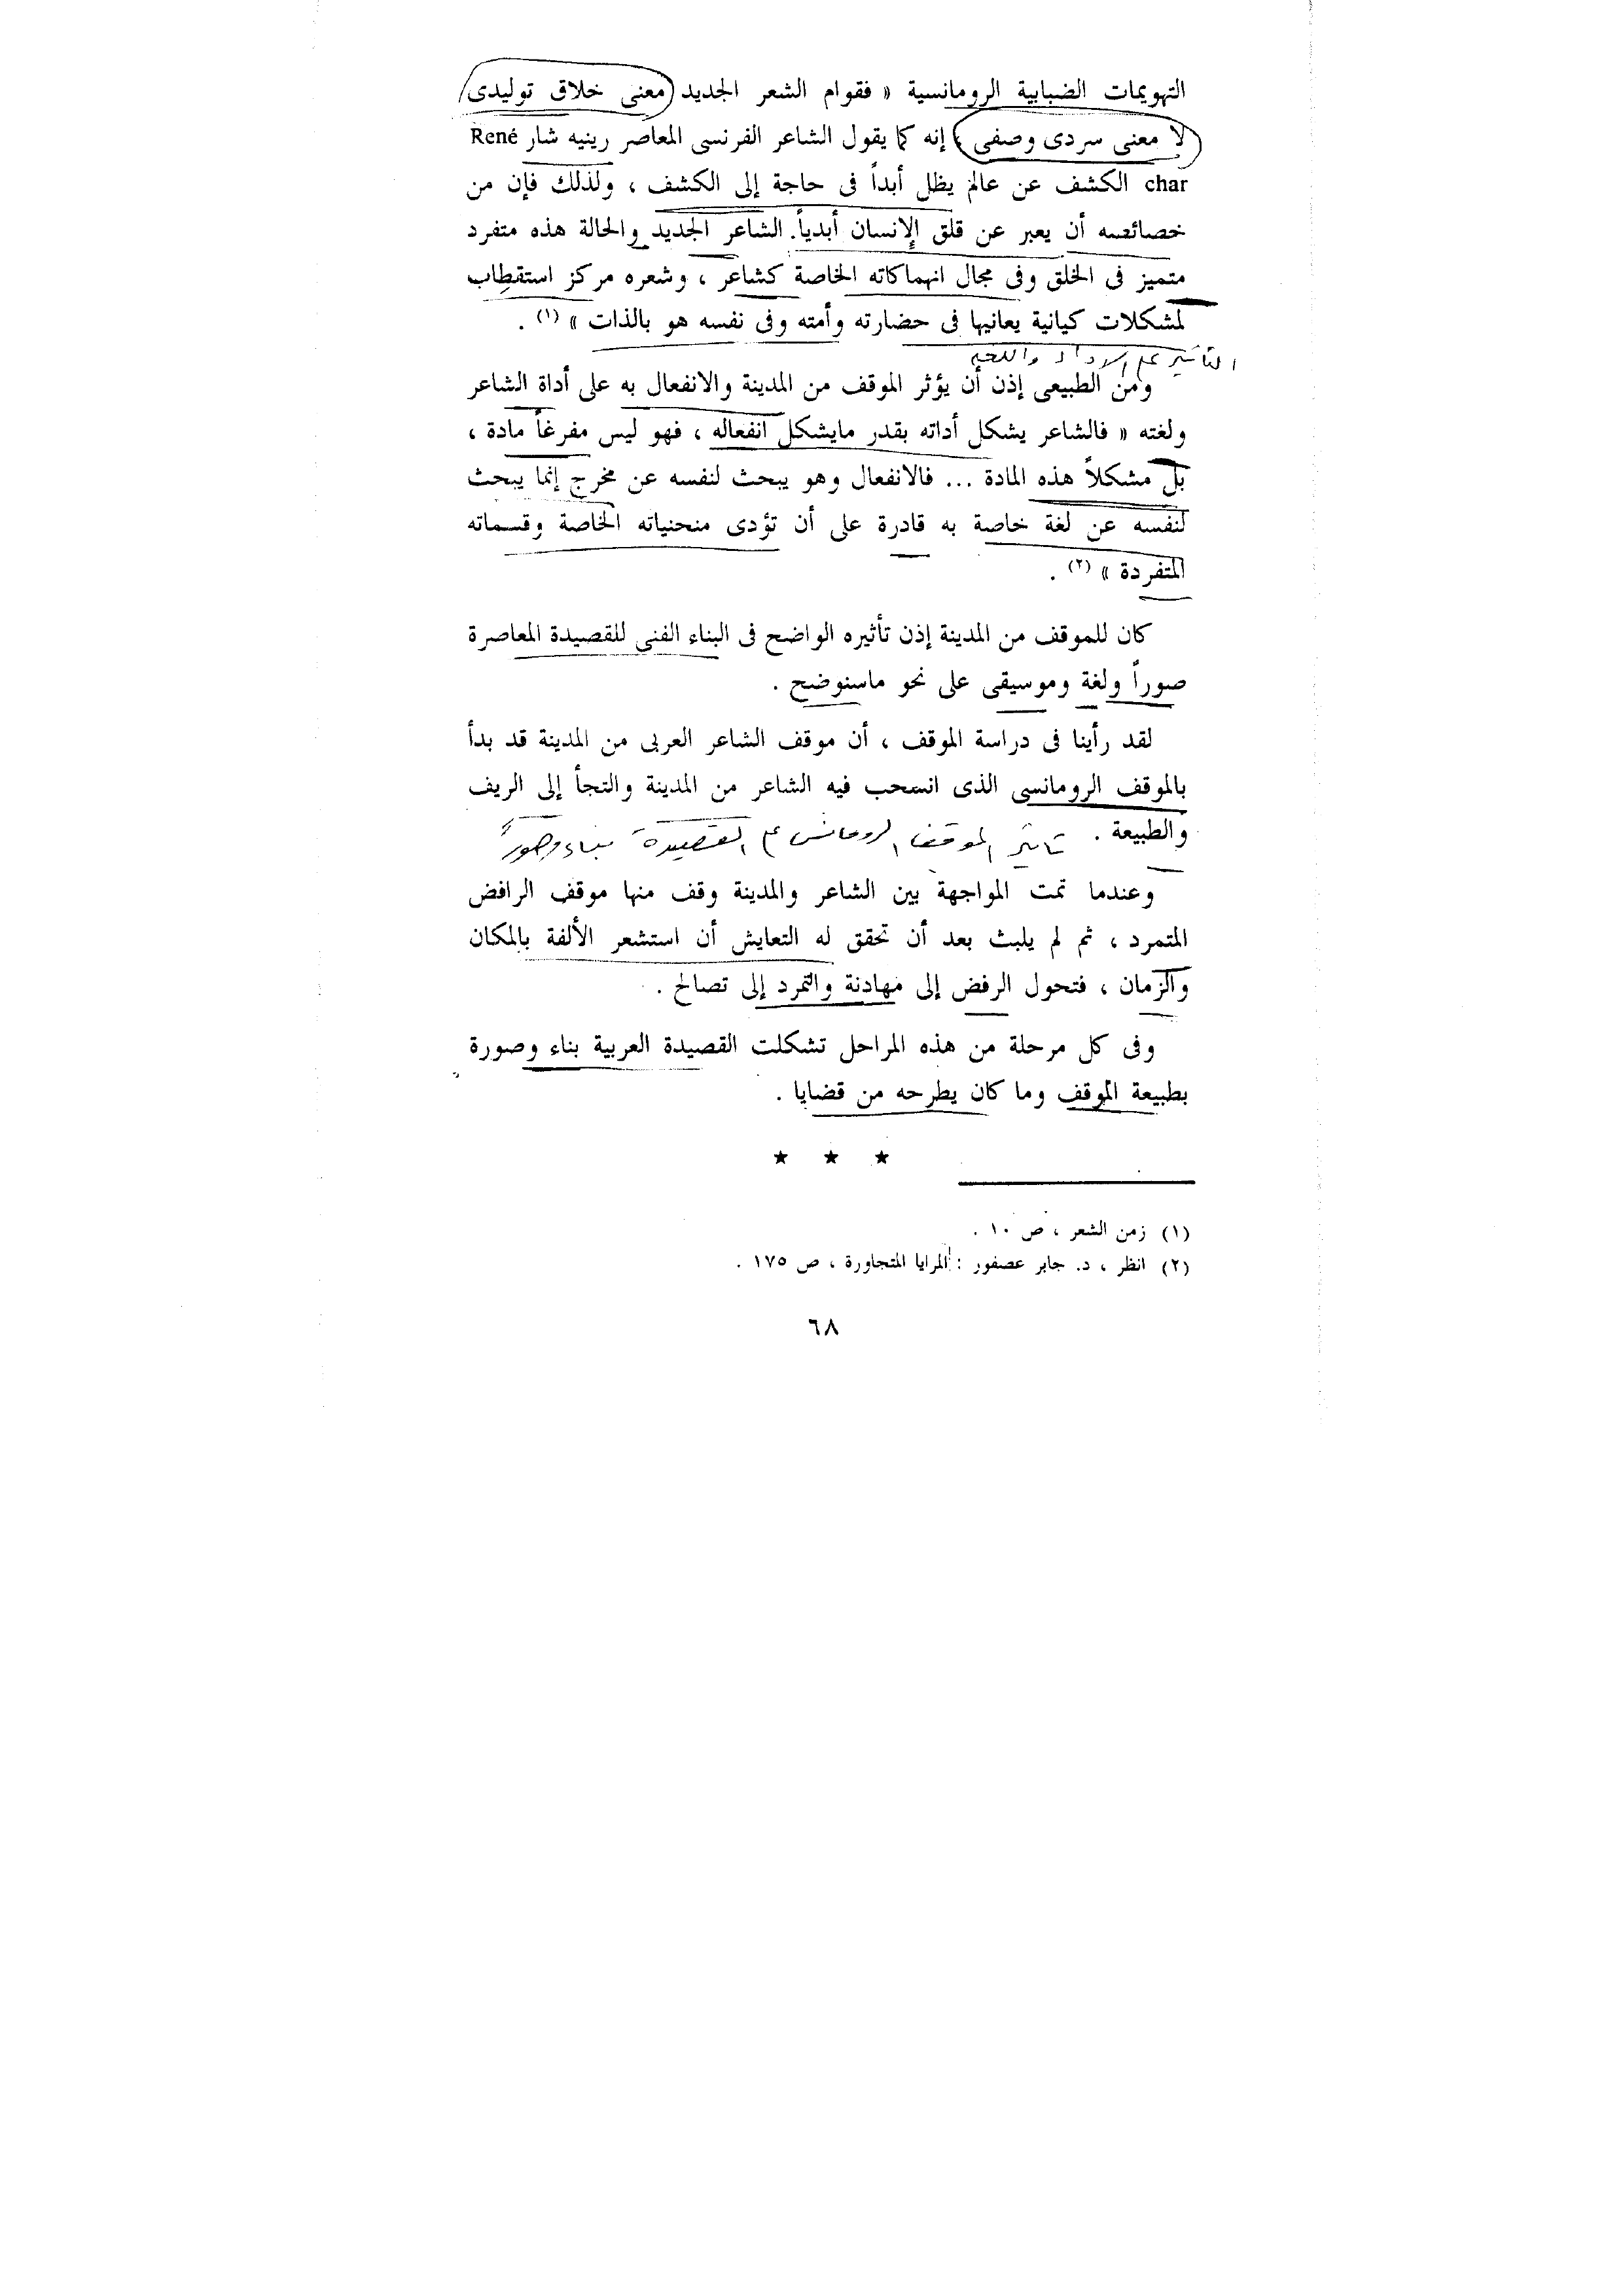 التهويمات الضبابية الرومانسية « فقوام الشعر الجديد معنى خلاق توليدى
لا معنى سردى وصفى ، إنه كما يقول الشاعر الفرنسى المعاصر رينيه شار René
char الكشف عن عالم يظل أبداً فى حاجة إلى الكشف ، ولذلك فإن من
خصائصه أن يعبر عن قلق الإنسان أبدياً. الشاعر الجديد والحالة هذه متفرد
متميز فى الخلق وفى مجال انهماكاته الخاصة كشاعر ، وشعره مركز استقطاب
لمشكلات كيانية يعانيها فى حضارته وأمته وفى نفسه هو بالذات » (١) .
التأثير على الأداة واللغة
ومن الطبيعى إذن أن يؤثر الموقف من المدينة والانفعال به على أداة الشاعر
ولغته « فالشاعر يشكل أداته بقدر مايشكل انفعاله ، فهو ليس مفرغاً مادة ،
بل مشكلاً هذه المادة ... فالانفعال وهو يبحث لنفسه عن مخرج إنما يبحث
لنفسه عن لغة خاصة به قادرة على أن تؤدى منحنياته الخاصة وقسماته
المتفردة » (٢) .
كان للموقف من المدينة إذن تأثيره الواضح فى البناء الفنى للقصيدة المعاصرة
صوراً ولغة وموسيقى على نحو ماسنوضح .
لقد رأينا فى دراسة الموقف ، أن موقف الشاعر العربى من المدينة قد بدأ
بالموقف الرومانسى الذى انسحب فيه الشاعر من المدينة والتجأ إلى الريف
والطبيعة . تأثير الموقف الرومانسى على القصيدة بناء وصوراً
وعندما تمت المواجهة بين الشاعر والمدينة وقف منها موقف الرافض
المتمرد ، ثم لم يلبث بعد أن تحقق له التعايش أن استشعر الألفة بالمكان
والزمان ، فتحول الرفض إلى مهادنة والتمرد إلى تصالح .
وفى كل مرحلة من هذه المراحل تشكلت القصيدة العربية بناء وصورة
بطبيعة الموقف وما كان يطرحه من قضايا .
★ ★ ★
(١) زمن الشعر ، ص ١٠ .
(٢) انظر ، د. جابر عصفور : المرايا المتجاورة ، ص ١٧٥ .
٦٨